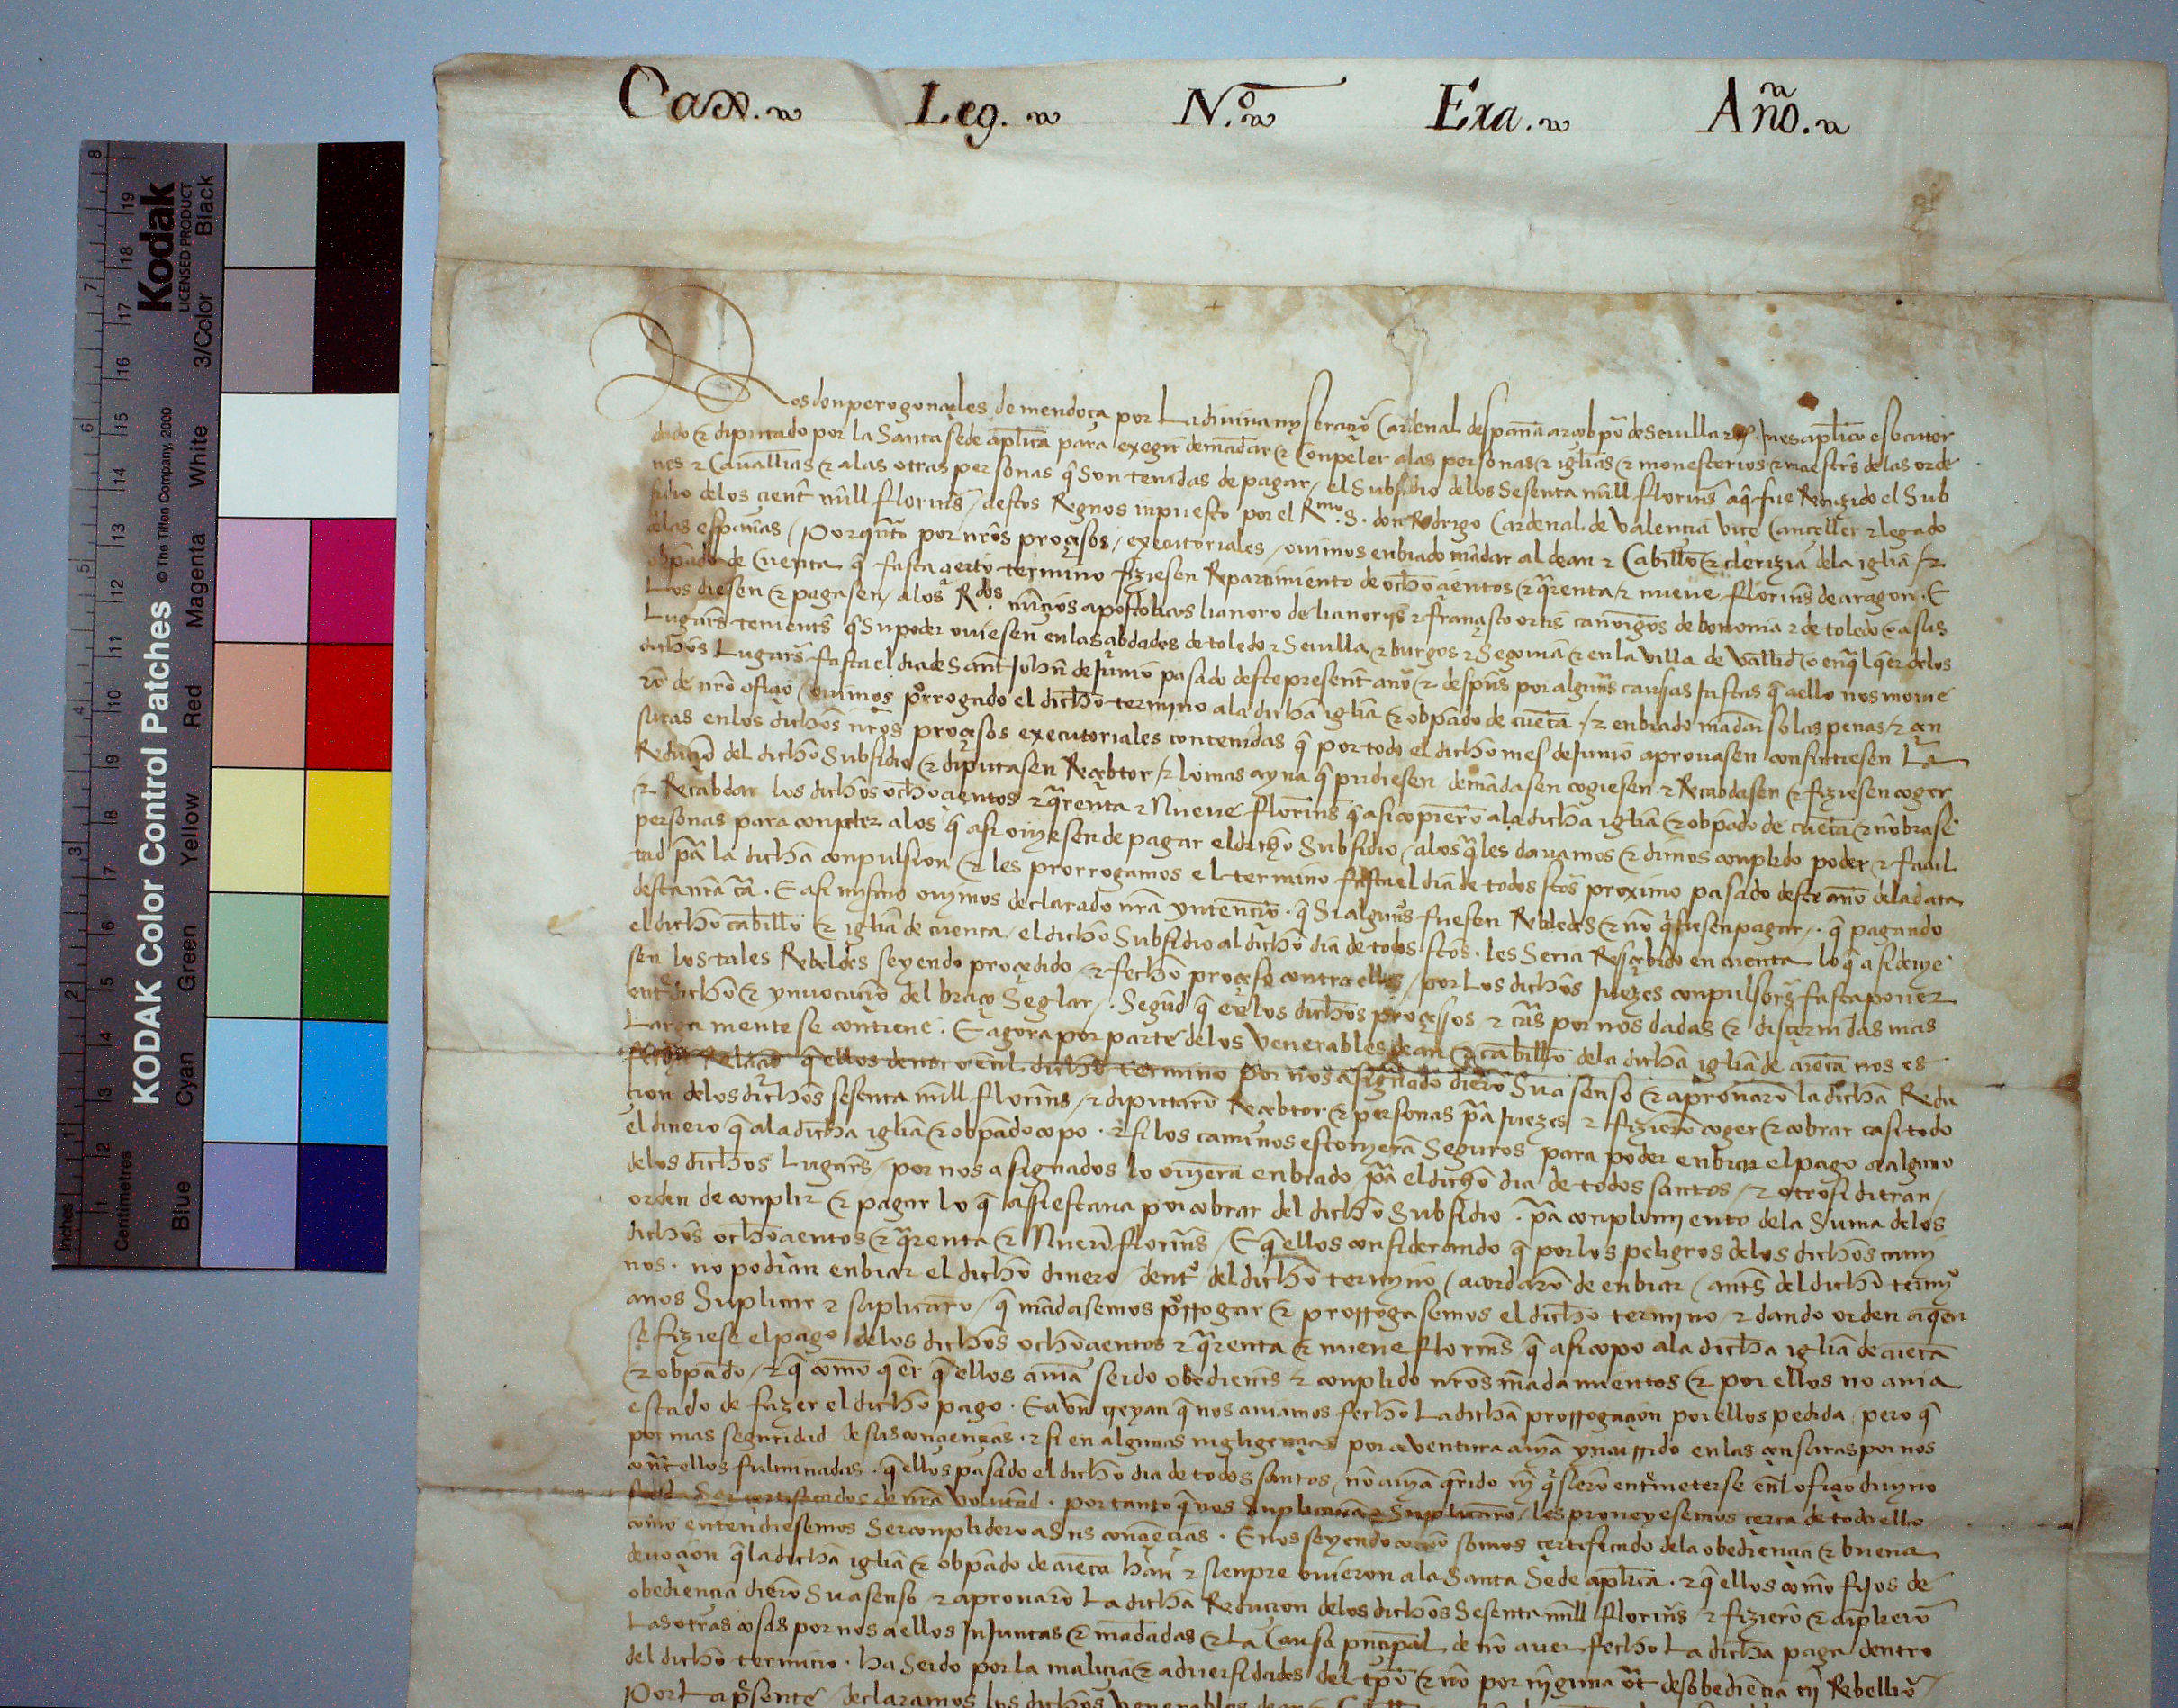 Cax. Leg. N.º Exa. Año.
KODAK Color Control Patches © The Tiffen Company, 2000
Kodak
LICENSED PRODUCT
Inches 1 2 3 4 5 6 7 8
Centimetres 1 2 3 4 5 6 7 8 9 10 11 12 13 14 15 16 17 18 19
Blue Cyan Green Yellow Red Magenta White 3/Color Black
Nos don pero gonçales de mendoça por La diuina myseraçiō Cardenal despaña arçobpo de Seuilla Juez aplico esecutor
dado & diputado por la Santa sede aplica para exegir demādar & Conpeler alas personas & iglias & monesterios & maestrs delas orde
nes & Cauallias & alas otras personas q̄ Son tenidas de pagar / el Subsidio delos Sesenta mill florins aq̄ fue Reduzido el Sub
sidio delos çient mill florins / destos Regnos inpuesto por el Rmo. S. don Rodrigo Cardenal de Valençia Viçe Cançeller & legado
delas españas / Por qnto por nros proçesos / executoriales / ouimos enbiado mādar al dean & Cabillo & clerizia dela iglia / &
obpado de Cuenca q̄ fasta çierto termino fiziesen Repartimiento de ochoçientos & qrenta & nueue florins de aragon. E
Los diesen & pagasen / alos Rdos. nūçios apostolicos lianoro de lianoris & françisco ortis canonigos de bononia & de toledo o a sus
Lugars tenients q̄ Su poder ouiesen en las çibdades de toledo & Seuilla & burgos & Segouia & en la villa de Vallid o en ql qer delos
dichos Lugars fasta el dia de Sant Johan de Junio pasado deste present año & despus por alguns causas Justas q̄ a ello nos mouie
rō de nro ofiçio / ouimos prorrogado el dicho termino ala dicha iglia & obpado de cuēca / & enbiado mādar so las penas / & çen
suras en los dichos nros proçesos executoriales contenidas q̄ por todo el dicho mes de Junio aprouasen consintiesen La
Reduçiō del dicho Subsidio & diputasen Reçebtor / & lo mas ayna q̄ pudiesen demādasen cogiesen & Recabdasen & fiziesen coger
& Recabdar los dichos ochoçientos & qrenta & Nueue florins q̄ asi copierō ala dicha iglia & obpado de cuēca & nōbrasē
personas para conpeler alos q̄ asi ouyesen de pagar el dicho Subsidio / alos qles dauamos & dimos conplido poder & facul
tad pa la dicha conpulsion & les prorrogamos el termino fasta el dia de todos sctos proximo pasado deste año dela data
desta nra ca. E asi mismo ouymos declarado nra yntençiō. q̄ Si algunos fuesen Rebeldes & no qsiesen pagar /. q̄ pagando
el dicho cabillo & iglia de cuenca / el dicho Subsidio al dicho dia de todos sctos. les Seria Resçebido en cuenta lo q̄ asi deuie
sen los tales Rebeldes seyendo proçedido / & fecho proçeso contra ellos / por Los dichos Juezes conpulsors fasta poner
entrdicho & ynuocaciō del braço Seglar /. Segūd q̄ en los dichos proçesos & cas por nos dadas & disçernidas mas
Larga mente se contiene. E agora por parte delos Venerables dean & cabillo dela dicha iglia de cuēca nos es
fecha Relaciō q̄ ellos dentro enl dicho termino por nos asignado dierō Su asenso & aprouarō la dicha Redu
çion delos dichos sesenta mill florins / & diputarō Reçebtor & personas pa Juezes & fizierō coger & cobrar casi todo
el dinero q̄ ala dicha iglia & obpado copo. & si los caminos estouierā Seguros para poder enbiar el pago a alguno
delos dichos Lugars / por nos asignados lo ouierā enbiado pa el dicho dia de todos santos / &
orden de conplir & pagar lo q̄ estaua por cobrar del dicho Subsidio. pa conplimyento dela Suma delos
dichos ochoçientos & qrenta & Nueue florins / E q̄ ellos considerando q̄ por los peligros delos dichos cami
nos. no podian enbiar el dicho dinero / dentro del dicho termyno / acordarō de enbiar / ants del dicho termyo
a nos Suplicar & suplicarō / q̄ mādasemos prorrogar & prorrogasemos el dicho termino & dando orden a qen
se fiziese el pago delos dichos ochoçientos & qrenta & nueue florins q̄ asi copo ala dicha iglia de cuēca
& obpado / & q̄ como qer q̄ ellos auiā seido obedients & conplido nros mādamientos & por ellos no auia
estado de fazer el dicho pago. E avn creyan q̄ nos auiamos fecho La dicha prorrogaçion por ellos pedida / pero q̄
por mas seguridad de sus conçiençias. & si en algunas nigligençias por aventura auyā yncurrido en las çensuras por nos
contra ellos fulminadas. q̄ ellos pasado el dicho dia de todos santos / no auyā qrido ny qsierō entrmeterse enl ofiçio diuino
certificados de nra voluntad. por tanto q̄ nos Suplicauā & Suplicarō / les proueyesemos çerca de todo ello
como entendiesemos Ser conplidero a Sus conçiēçias. E nos seyendo como somos çertificado dela obediençia & buena
deuoçion q̄ la dicha iglia & obpado de cuēca han & sienpre ouieron ala Santa Sede aplica. & q̄ ellos como fijos de
obediençia dierō Su asenso & aprouarō La dicha Reduçion delos dichos Sesenta mill florins & fizierō & cūplierō
Las otras cosas por nos a ellos InJuntas & mādadas & La Causa prinçipal de no auer fecho La dicha paga dentro
del dicho termino. ha Seido por la maliçia & aduersidades del tpo & no por niguna desobediençia ny Rebelliō
Por La presente / declaramos los dichos Venerables dean &